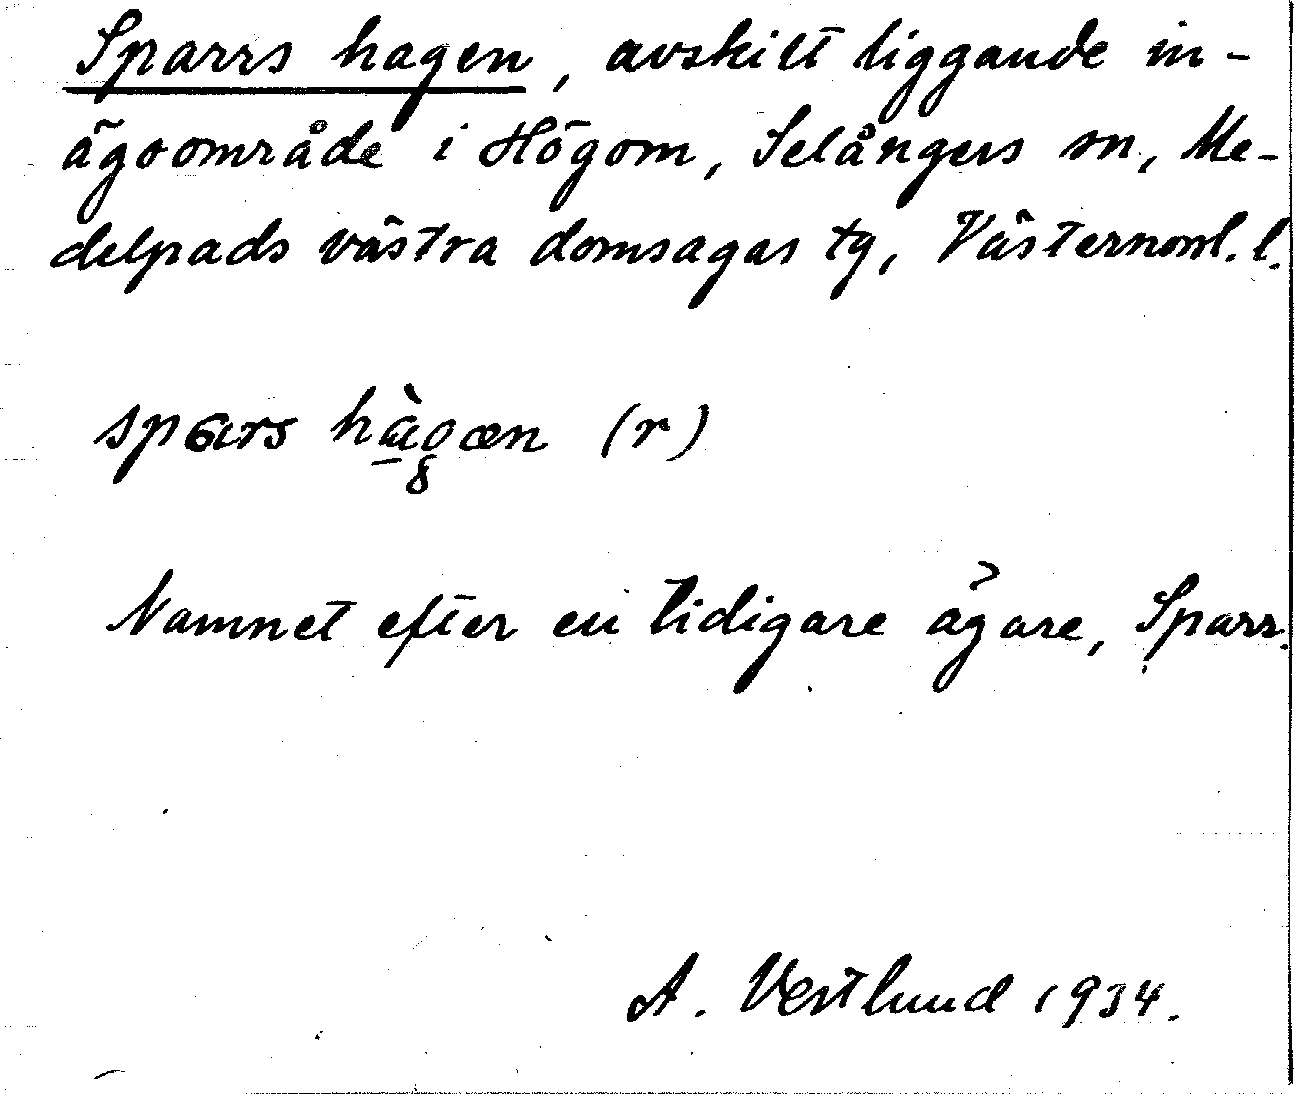 Sparrs hagen, avskilt liggande in-
ägoområde i Högom, Selångers sn, Me-
delpads västra domsagas tg, Västernorrl. l.
spɑrs hàgæn (r)
Namnet efter en tidigare ägare, Sparr.
A. Vestlund 1934.